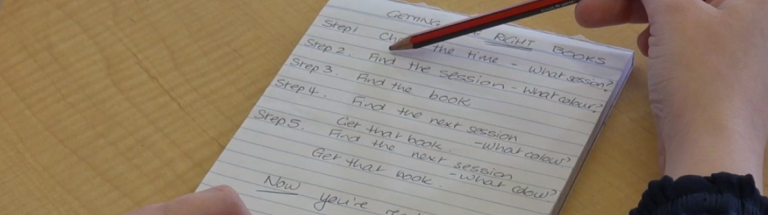 GETTING RIGHT BOOKS
Step 1 the time - What session?
Step 2. Find the session - What colour?
Step 3. Find the book
Step 4. Find the next session
- What colour?
Get that book.
Step 5. Find the next session
- What colour?
Get that book.
Now you're